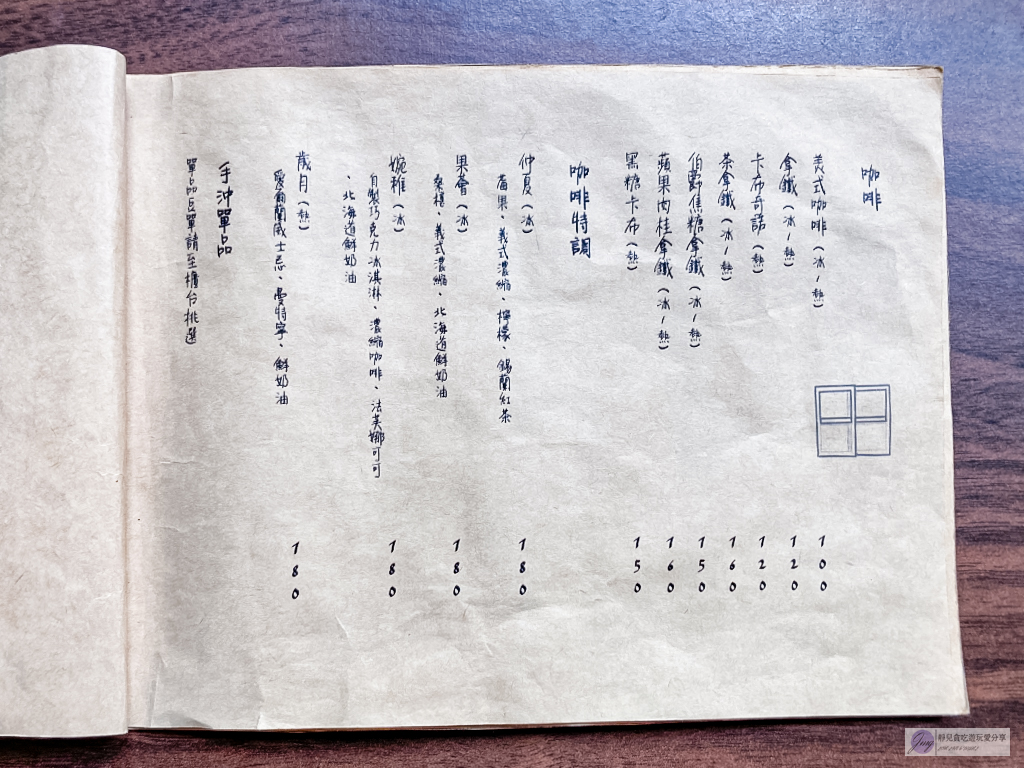 咖啡
美式咖啡(冰/熱) 100
拿鐵(冰/熱) 120
卡布奇諾(熱) 120
茶拿鐵(冰/熱) 160
伯爵焦糖拿鐵(冰/熱) 150
蘋果肉桂拿鐵(冰/熱) 160
黑糖卡布(熱) 150
咖啡特調
仲夏(冰) 180
莓果、義式濃縮、檸檬、錫蘭紅茶
果薈(冰) 180
桑椹、義式濃縮、北海道鮮奶油
婉雅(冰) 180
自製巧克力冰淇淋、濃縮咖啡、法芙娜可可
、北海道鮮奶油
歲月(熱) 180
愛爾蘭威士忌、曼特寧、鮮奶油
手沖單品
單品豆單請至櫃台挑選
靜兒貪吃遊玩愛分享